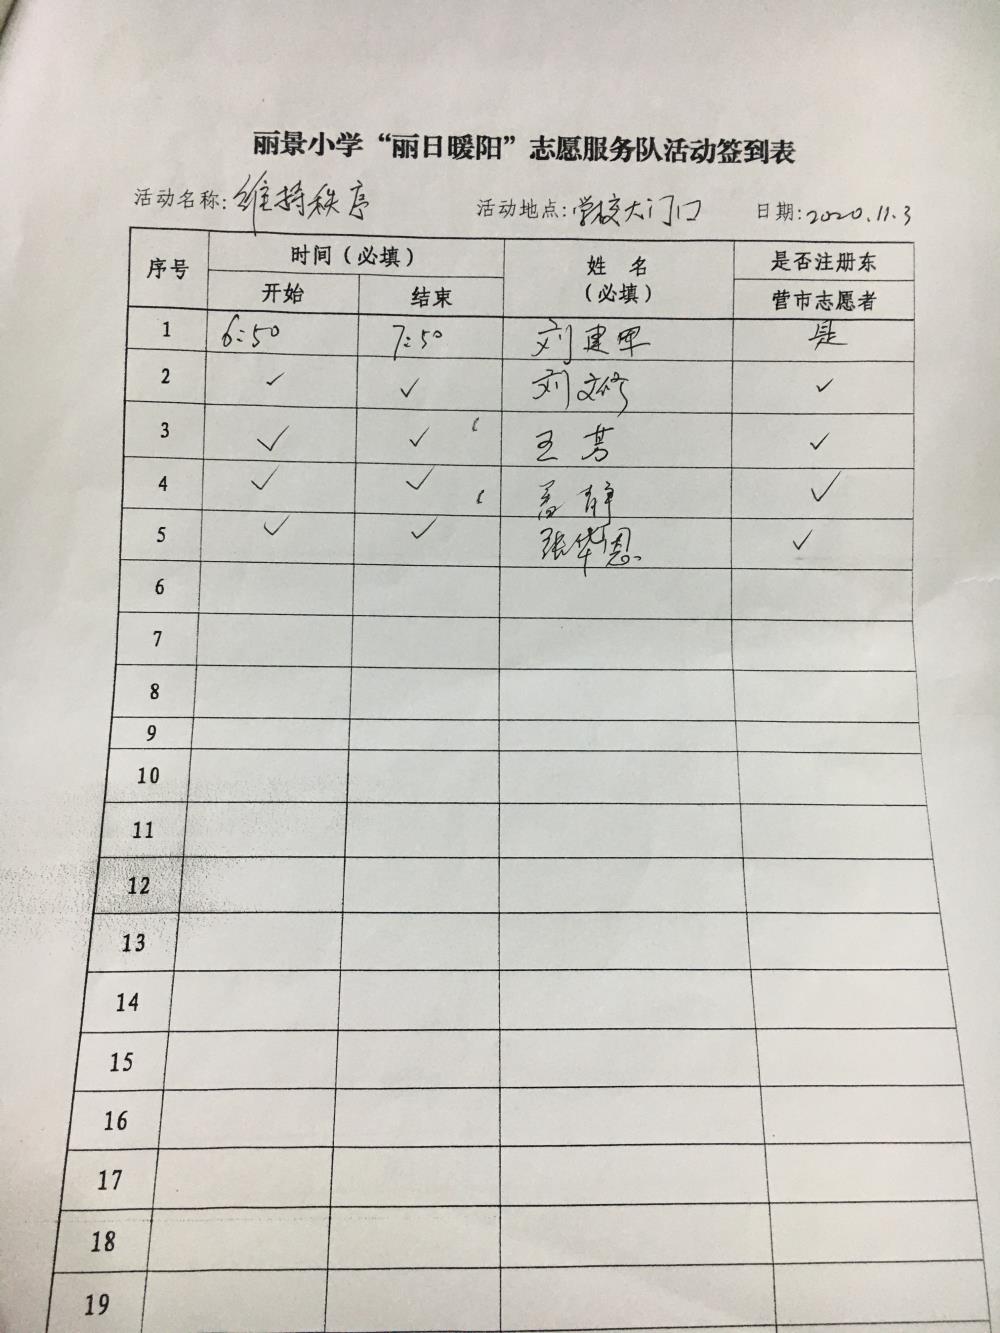 丽景小学“丽日暖阳”志愿服务队活动签到表
活动名称:维持秩序 活动地点:学校大门口 日期:2020.11.3
序号 时间(必填) 姓名(必填) 是否注册东营市志愿者
开始 结束
1 6:50 7:50 刘建军 是
2 ✓ ✓ 刘文修 ✓
3 ✓ ✓ 王芳 ✓
4 ✓ ✓ 静 ✓
5 ✓ ✓ 张华恩 ✓
6
7
8
9
10
11
12
13
14
15
16
17
18
19